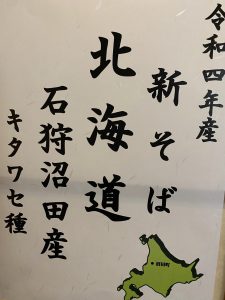 令和四年産
新そば
北海道
石狩沼田産
キタワセ種